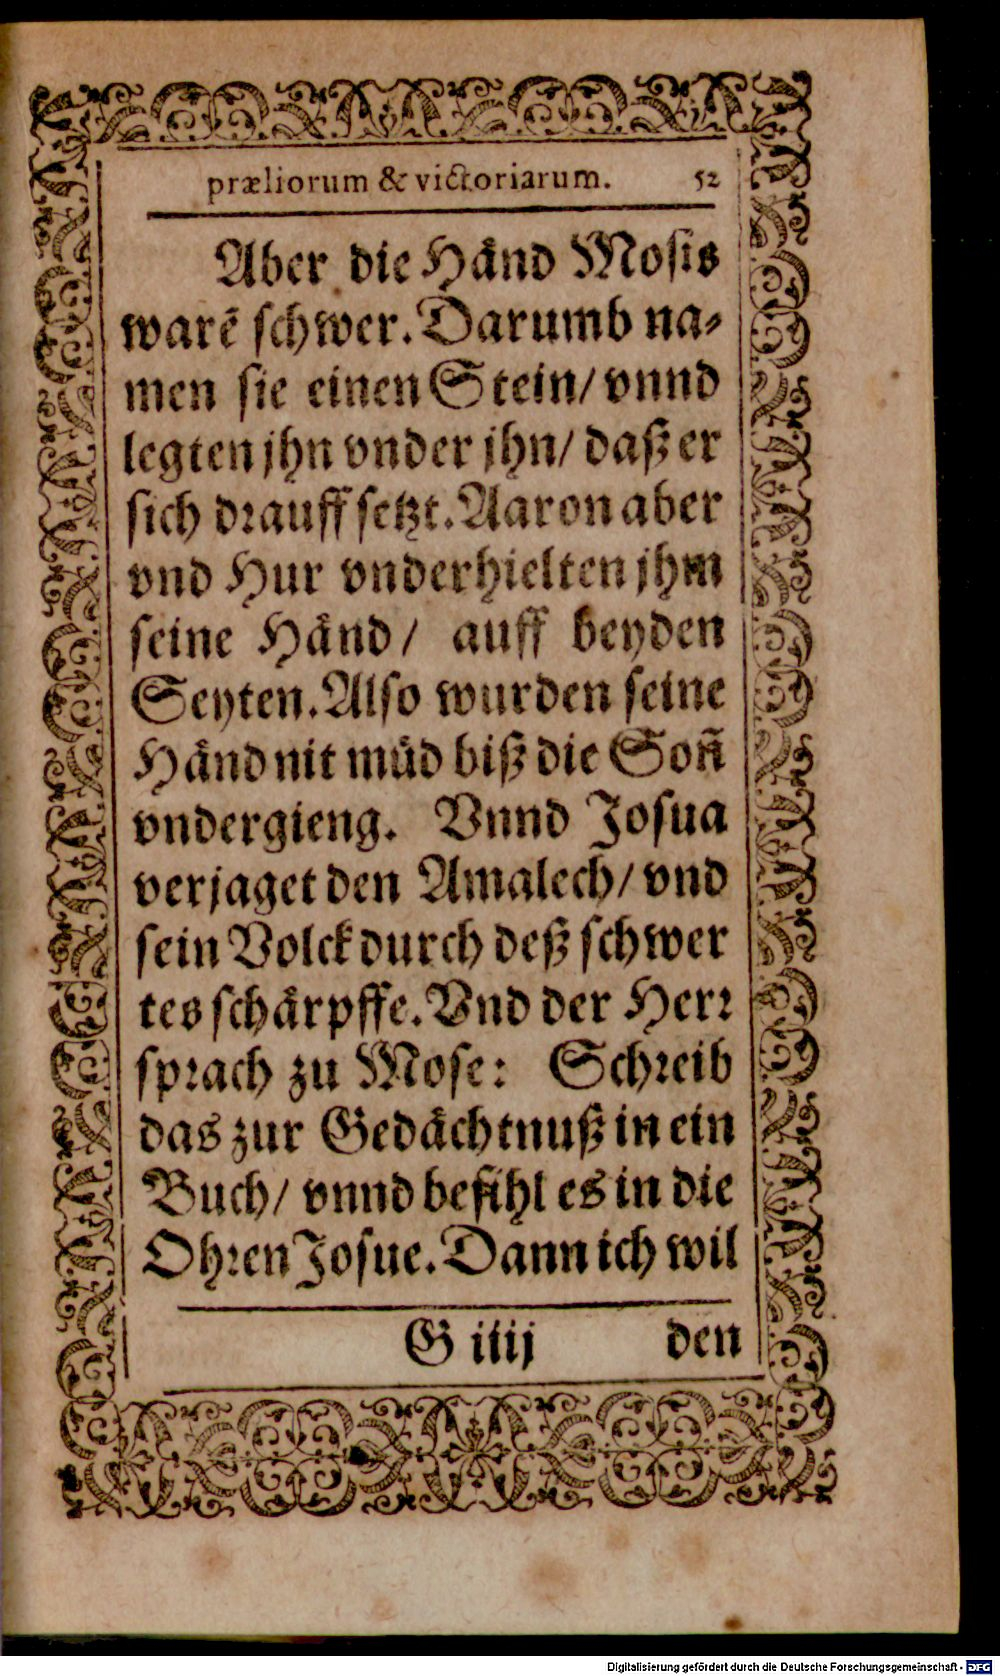 præliorum & victoriarum. 52
Aber die Hånd Mosis
warẽ schwer. Darumb na-
men sie einen Stein/ vnnd
legten jhn vnder jhn/ daß er
sich drauff setzt. Aaron aber
vnd Hur vnderhielten jhm
seine Hånd/ auff beyden
Seyten. Also wurden seine
Hånd nit můd biß die Soñ
vndergieng. Vnnd Josua
verjaget den Amalech/ vnd
sein Volck durch deß schwer
tes schårpffe. Vnd der Herr
sprach zu Mose: Schreib
das zur Gedåchtnuß in ein
Buch/ vnnd befihl es in die
Ohren Josue. Dann ich wil
G iiij den
Digitalisierung gefördert durch die Deutsche Forschungsgemeinschaft - DFG